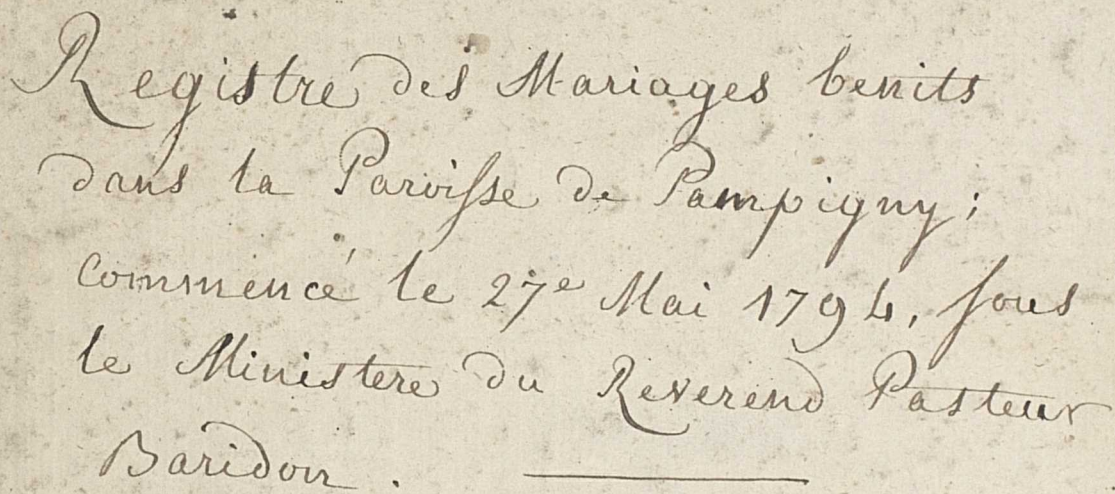 Registre des Mariages benits
dans la Paroisse de Pampigny;
commencé le 27e Mai 1794, sous
le Ministere du Reverend Pasteur
Baridon.